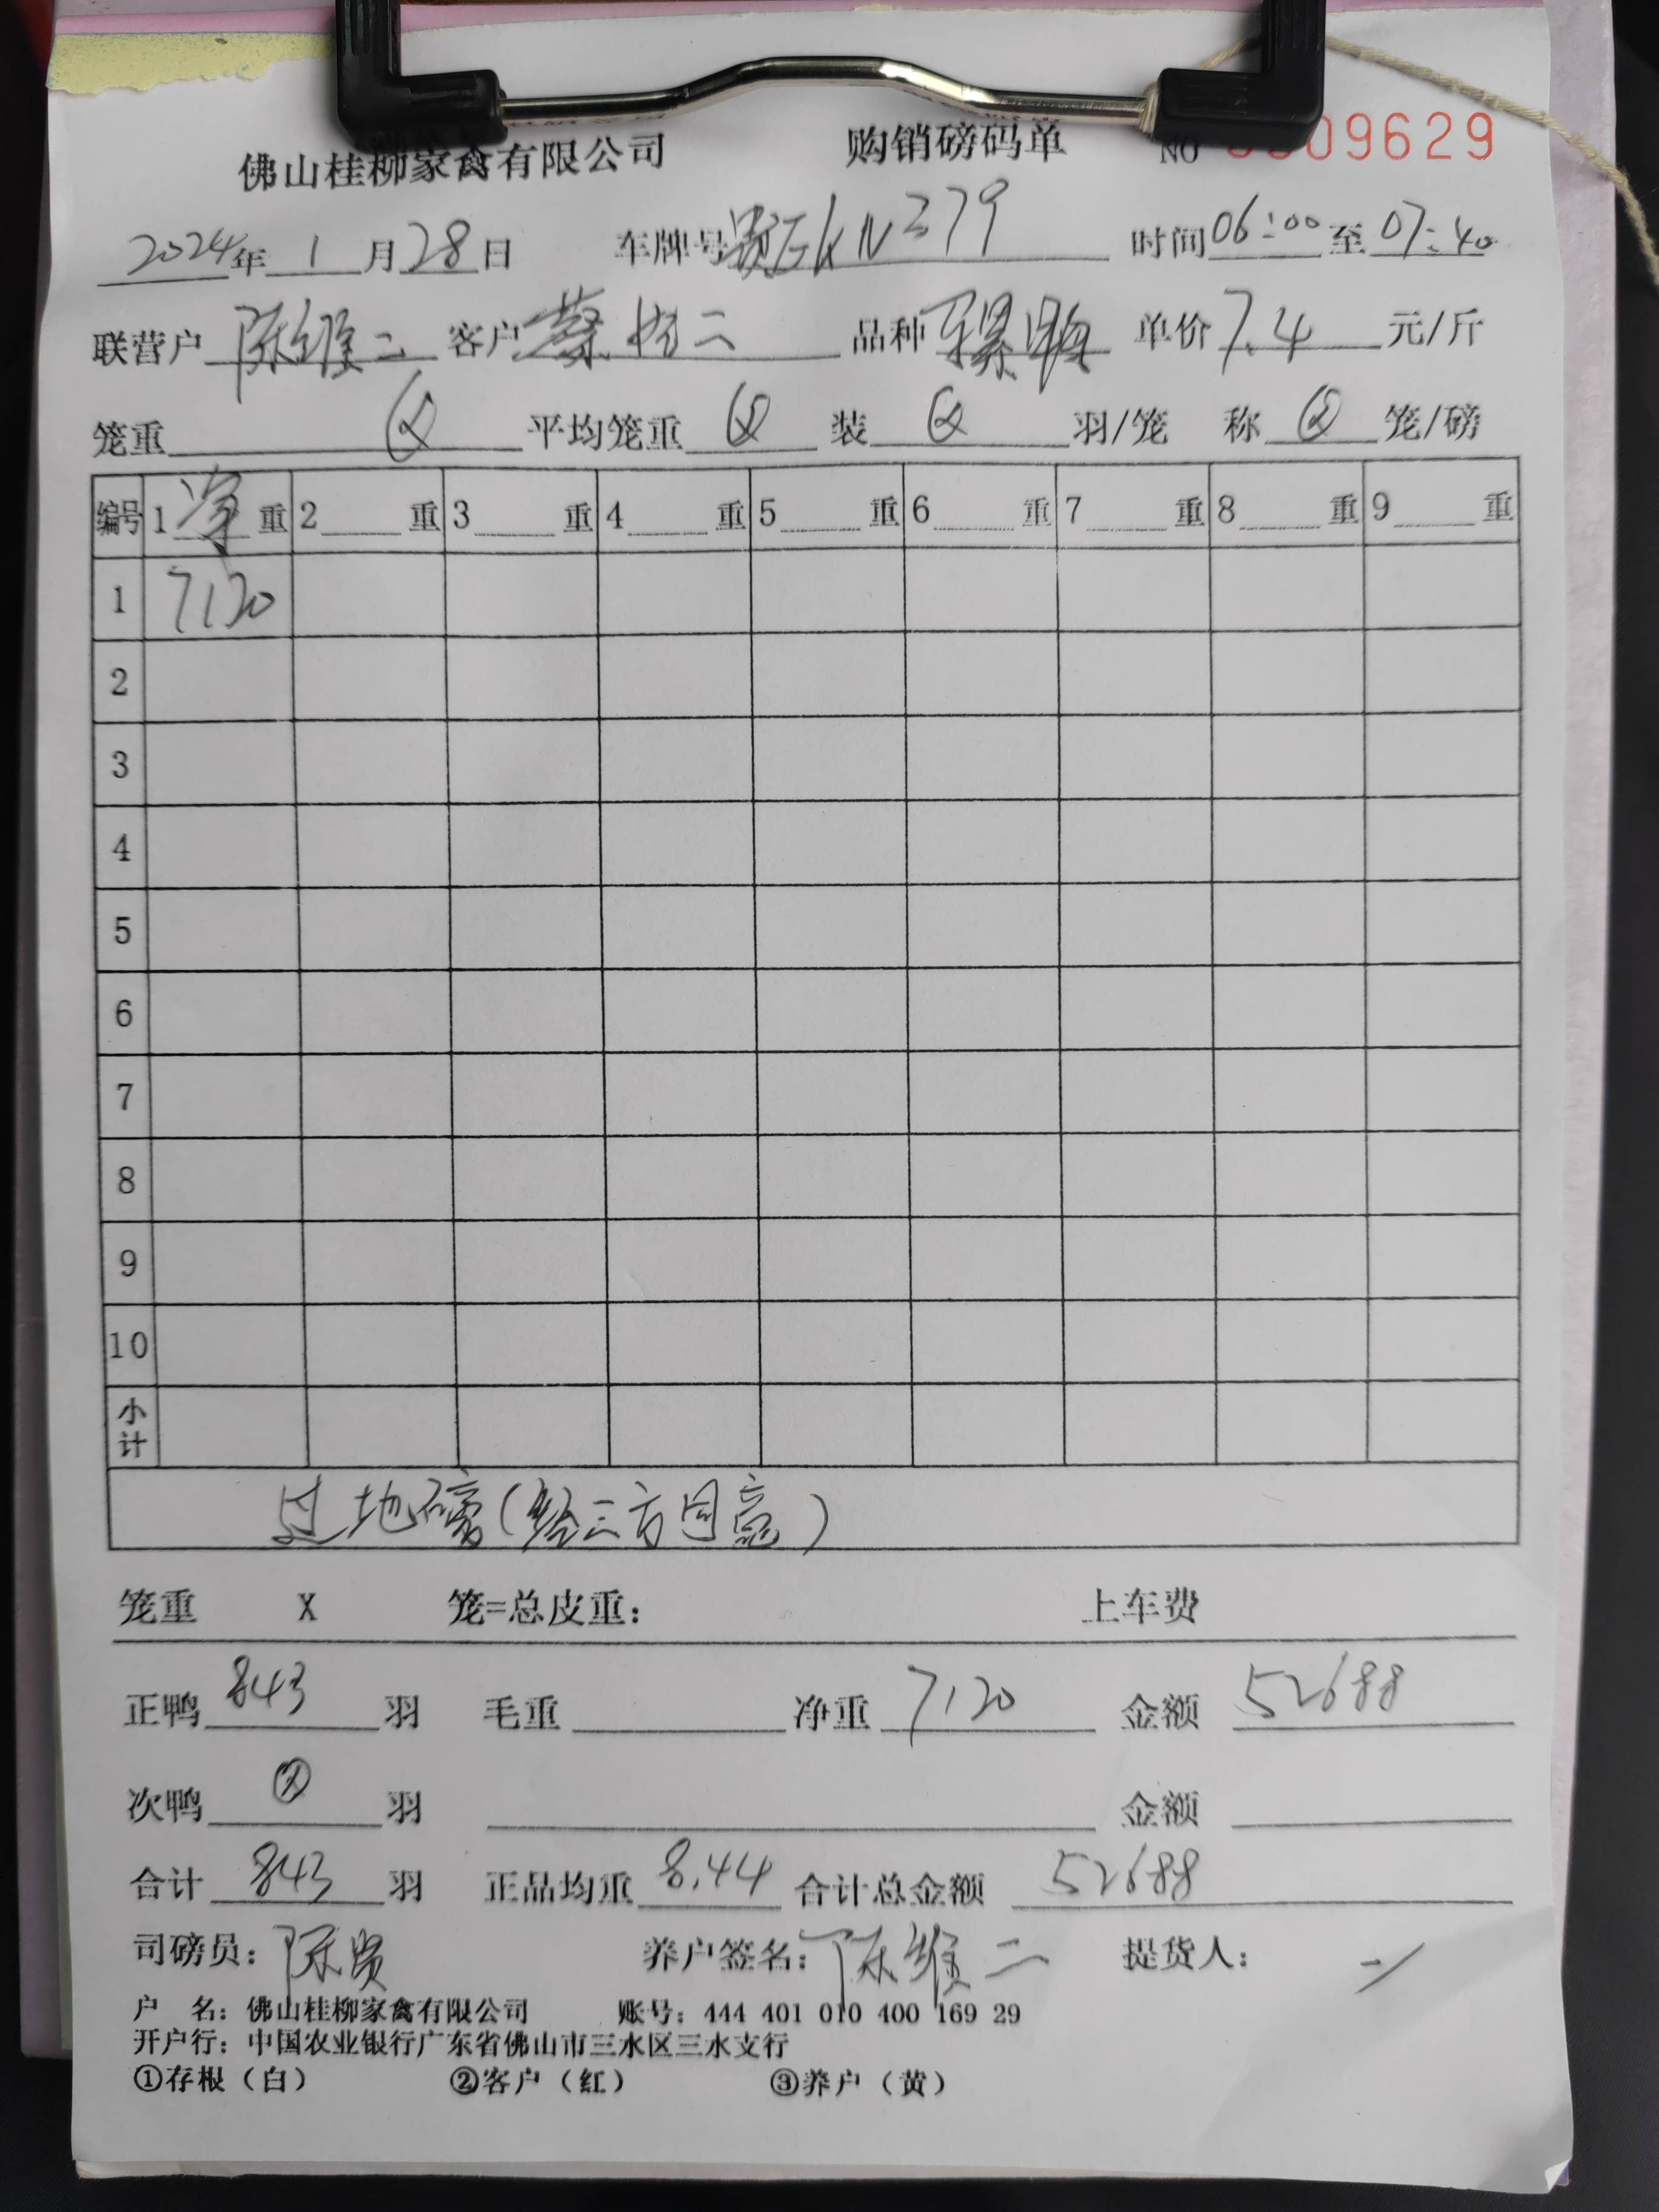 佛山桂柳家禽有限公司 购销磅码单 NO 09629
2024年 1 月 28 日 车牌号 KN379 时间 06:00 至 07:40
联营户 陈维二 客户 蔡 二 品种 骡鸭 单价 7.4 元/斤
笼重 平均笼重 装 羽/笼 称 笼/磅
编号 1 净 重 2 重 3 重 4 重 5 重 6 重 7 重 8 重 9 重
1 7120
2
3
4
5
6
7
8
9
10
小计
过地磅(经三方同意)
笼重 X 笼=总皮重: 上车费
正鸭 843 羽 毛重 净重 7120 金额 52688
次鸭 羽 金额
合计 843 羽 正品均重 8.44 合计总金额 52688
司磅员: 陈贤 养户签名: 陈维二 提货人:
户 名: 佛山桂柳家禽有限公司 账号: 444 401 010 400 169 29
开户行: 中国农业银行广东省佛山市三水区三水支行
①存根(白) ②客户(红) ③养户(黄)